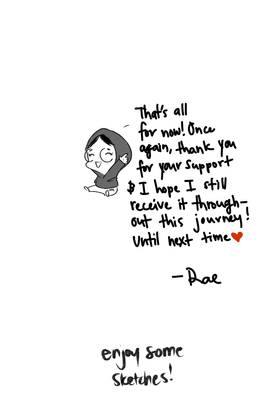 That's all
for now! Once
again, thank you
for your support
& I hope I still
receive it through-
out this journey!
Until next time ♥
- Rae
enjoy some
sketches!